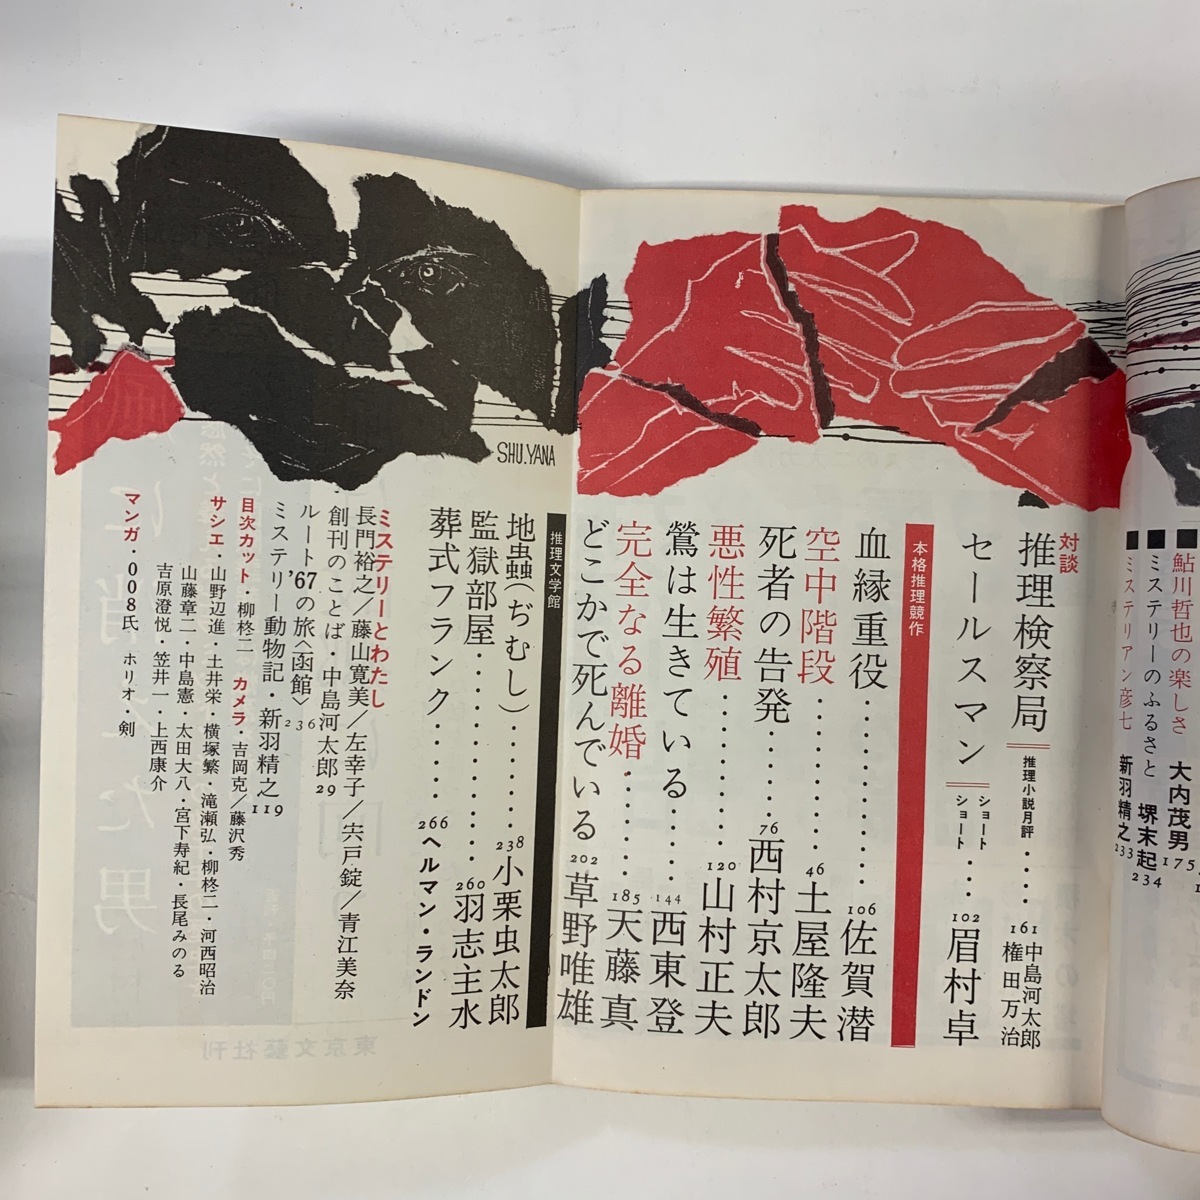 鮎川哲也の楽しさ 大内茂男 175
ミステリーのふるさと 堺末起 234
ミステリアン彦七 新羽精之 233
対談
推理検察局 推理小説月評‥‥161 中島河太郎 権田万治
セールスマン ショートショート‥‥102 眉村卓
本格推理競作
血縁重役‥‥‥‥‥106 佐賀潜
空中階段‥‥‥‥‥46 土屋隆夫
死者の告発‥‥‥76 西村京太郎
悪性繁殖‥‥‥‥‥120 山村正夫
鶯は生きている‥‥‥144 西東登
完全なる離婚‥‥‥185 天藤真
どこかで死んでいる 202 草野唯雄
推理文学館
地蟲(ぢむし)‥‥‥‥238 小栗虫太郎
監獄部屋‥‥‥‥‥‥260 羽志主水
葬式フランク‥‥‥266 ヘルマン・ランドン
ミステリーとわたし
長門裕之/藤山寛美/左幸子/宍戸錠/青江美奈
創刊のことば・中島河太郎 29
ルート'67の旅〈函館〉236
ミステリー動物記・新羽精之 119
目次カット・柳柊二 カメラ・吉岡克/藤沢秀
サシエ・山野辺進・土井栄・横塚繁・滝瀬弘・柳柊二・河西昭治
山藤章二・中島憲・太田大八・宮下寿紀・長尾みのる
吉原澄悦・笠井一・上西康介
マンガ・008氏 ホリオ・剣
SHU.YANA